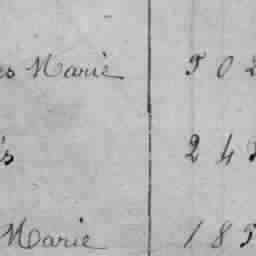 es Marie 5 0 2
és 2 4
Marie 1 8 5